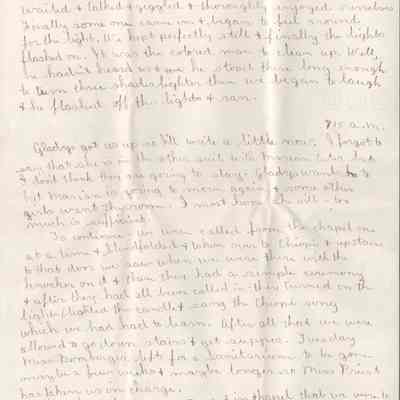 waited & talked & giggled & thoroughly enjoyed ourselves
Finally some one came in & began to feel around
for the light. We kept perfectly still & finally the lights
flashed on. It was the colored man to clean up. Well,
he hadn't heard us & he stood there long enough
to turn three shades lighter than we began to laugh
& he flashed off the lights & ran.
7:15 a.m.
Gladys got us up so I'll write a little now. I forgot to
say that she is in the other suit with Miriam Luter but
I don't think they are going to stay. Gladys wants to
but Marian is going to move again & some other
girls want the room. I must have the
much is sufficient.
To continue - we were called from the chapel one
at a time & blindfolded & taken over to Chiopi & upstairs
to that door we saw when we were there with the
on it & then they had a simple ceremony
& after they had all been called in they turned on the
lights, lighted the candles & sang the Chiopi song
which we had had to learn. After all that we were
allowed to go down stairs & get supper. Tuesday
Miss left for a Sanitarium to be gone
maybe a few weeks & maybe longer so Miss Priest
has taken us in charge.
in chapel that we were to